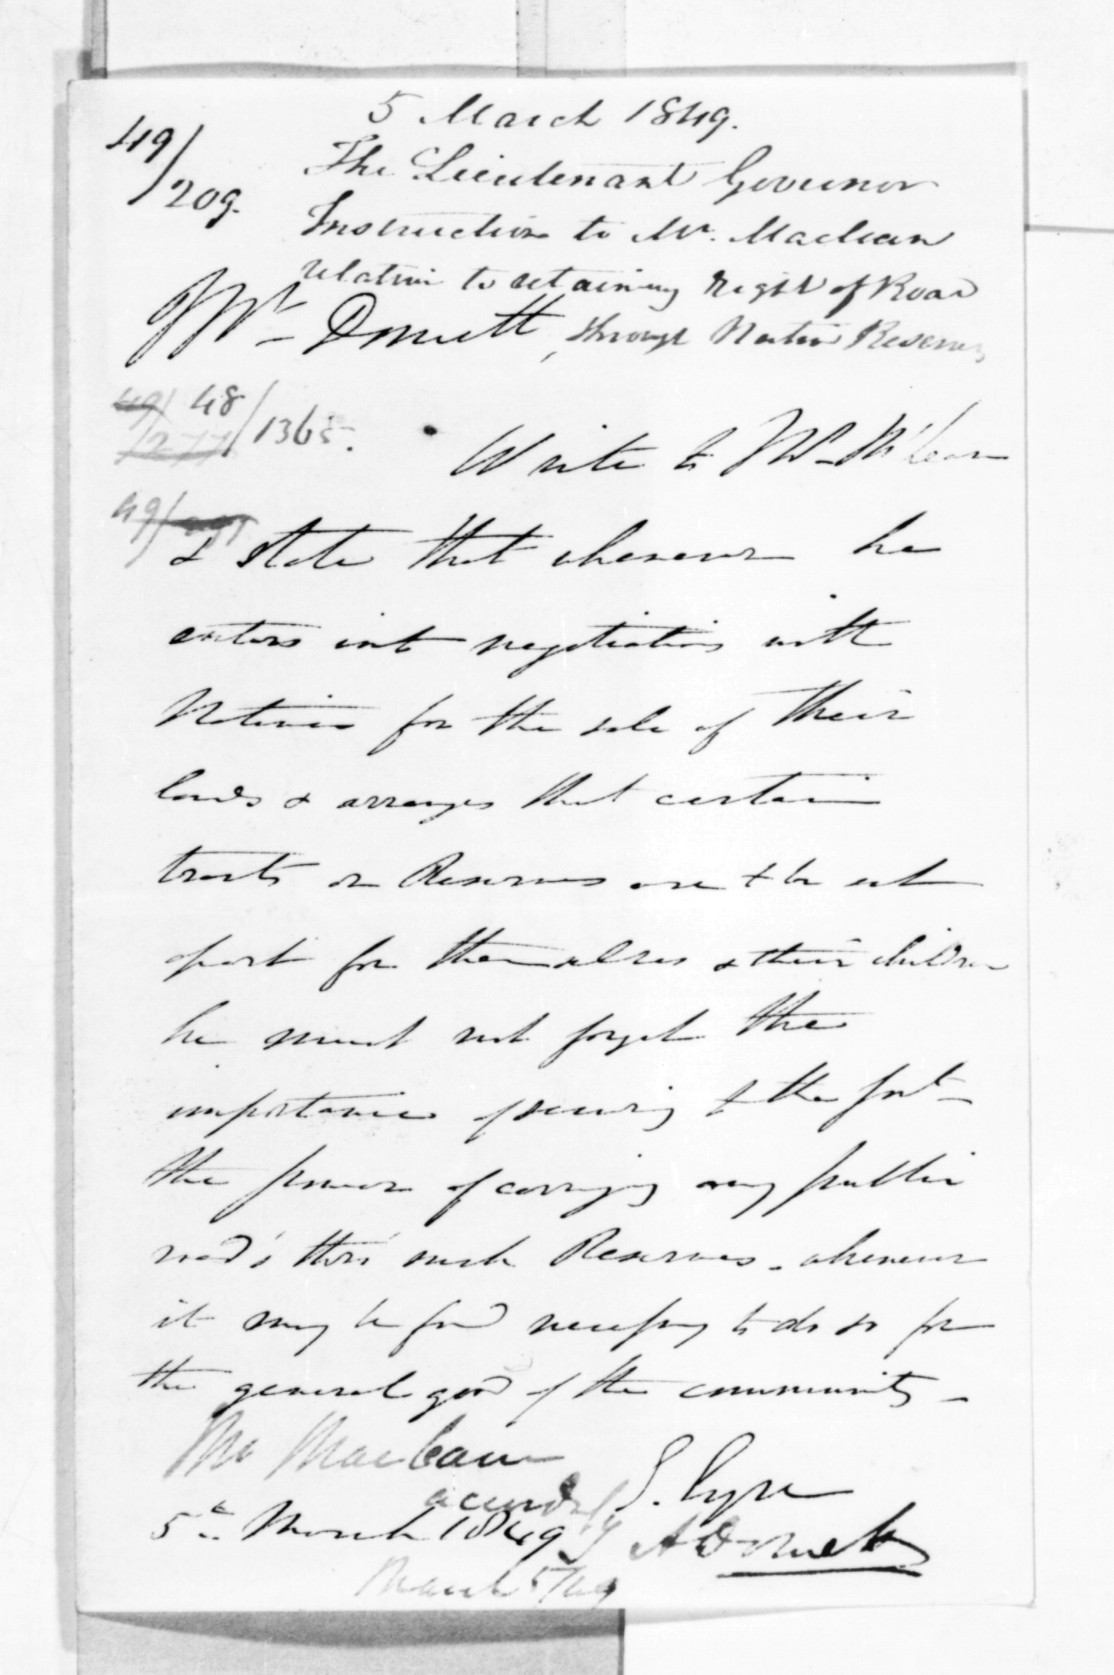 5 March 1849.
49/209.
The Lieutenant Governor
Instruction to Mr. Maclean
relative to retaining Right of Road
through Native Reserves
Mr. Domett,
49/277 48/1365.
Write to Mr. McLean
49/
& state that whenever he
enters into negotiations with
Natives for the sale of their
lands & arranges that certain
tracts or Reserves are to be set
apart for themselves & their children
he must not forget the
importance of securing to the Govt
the power of carrying any public
road's thro' such Reserves - whenever
it may be found necessary to do so for
the general good of the community -
Mr Maclean
accordingly
E. Eyre
5th March 1849
A Domett
March 5/49